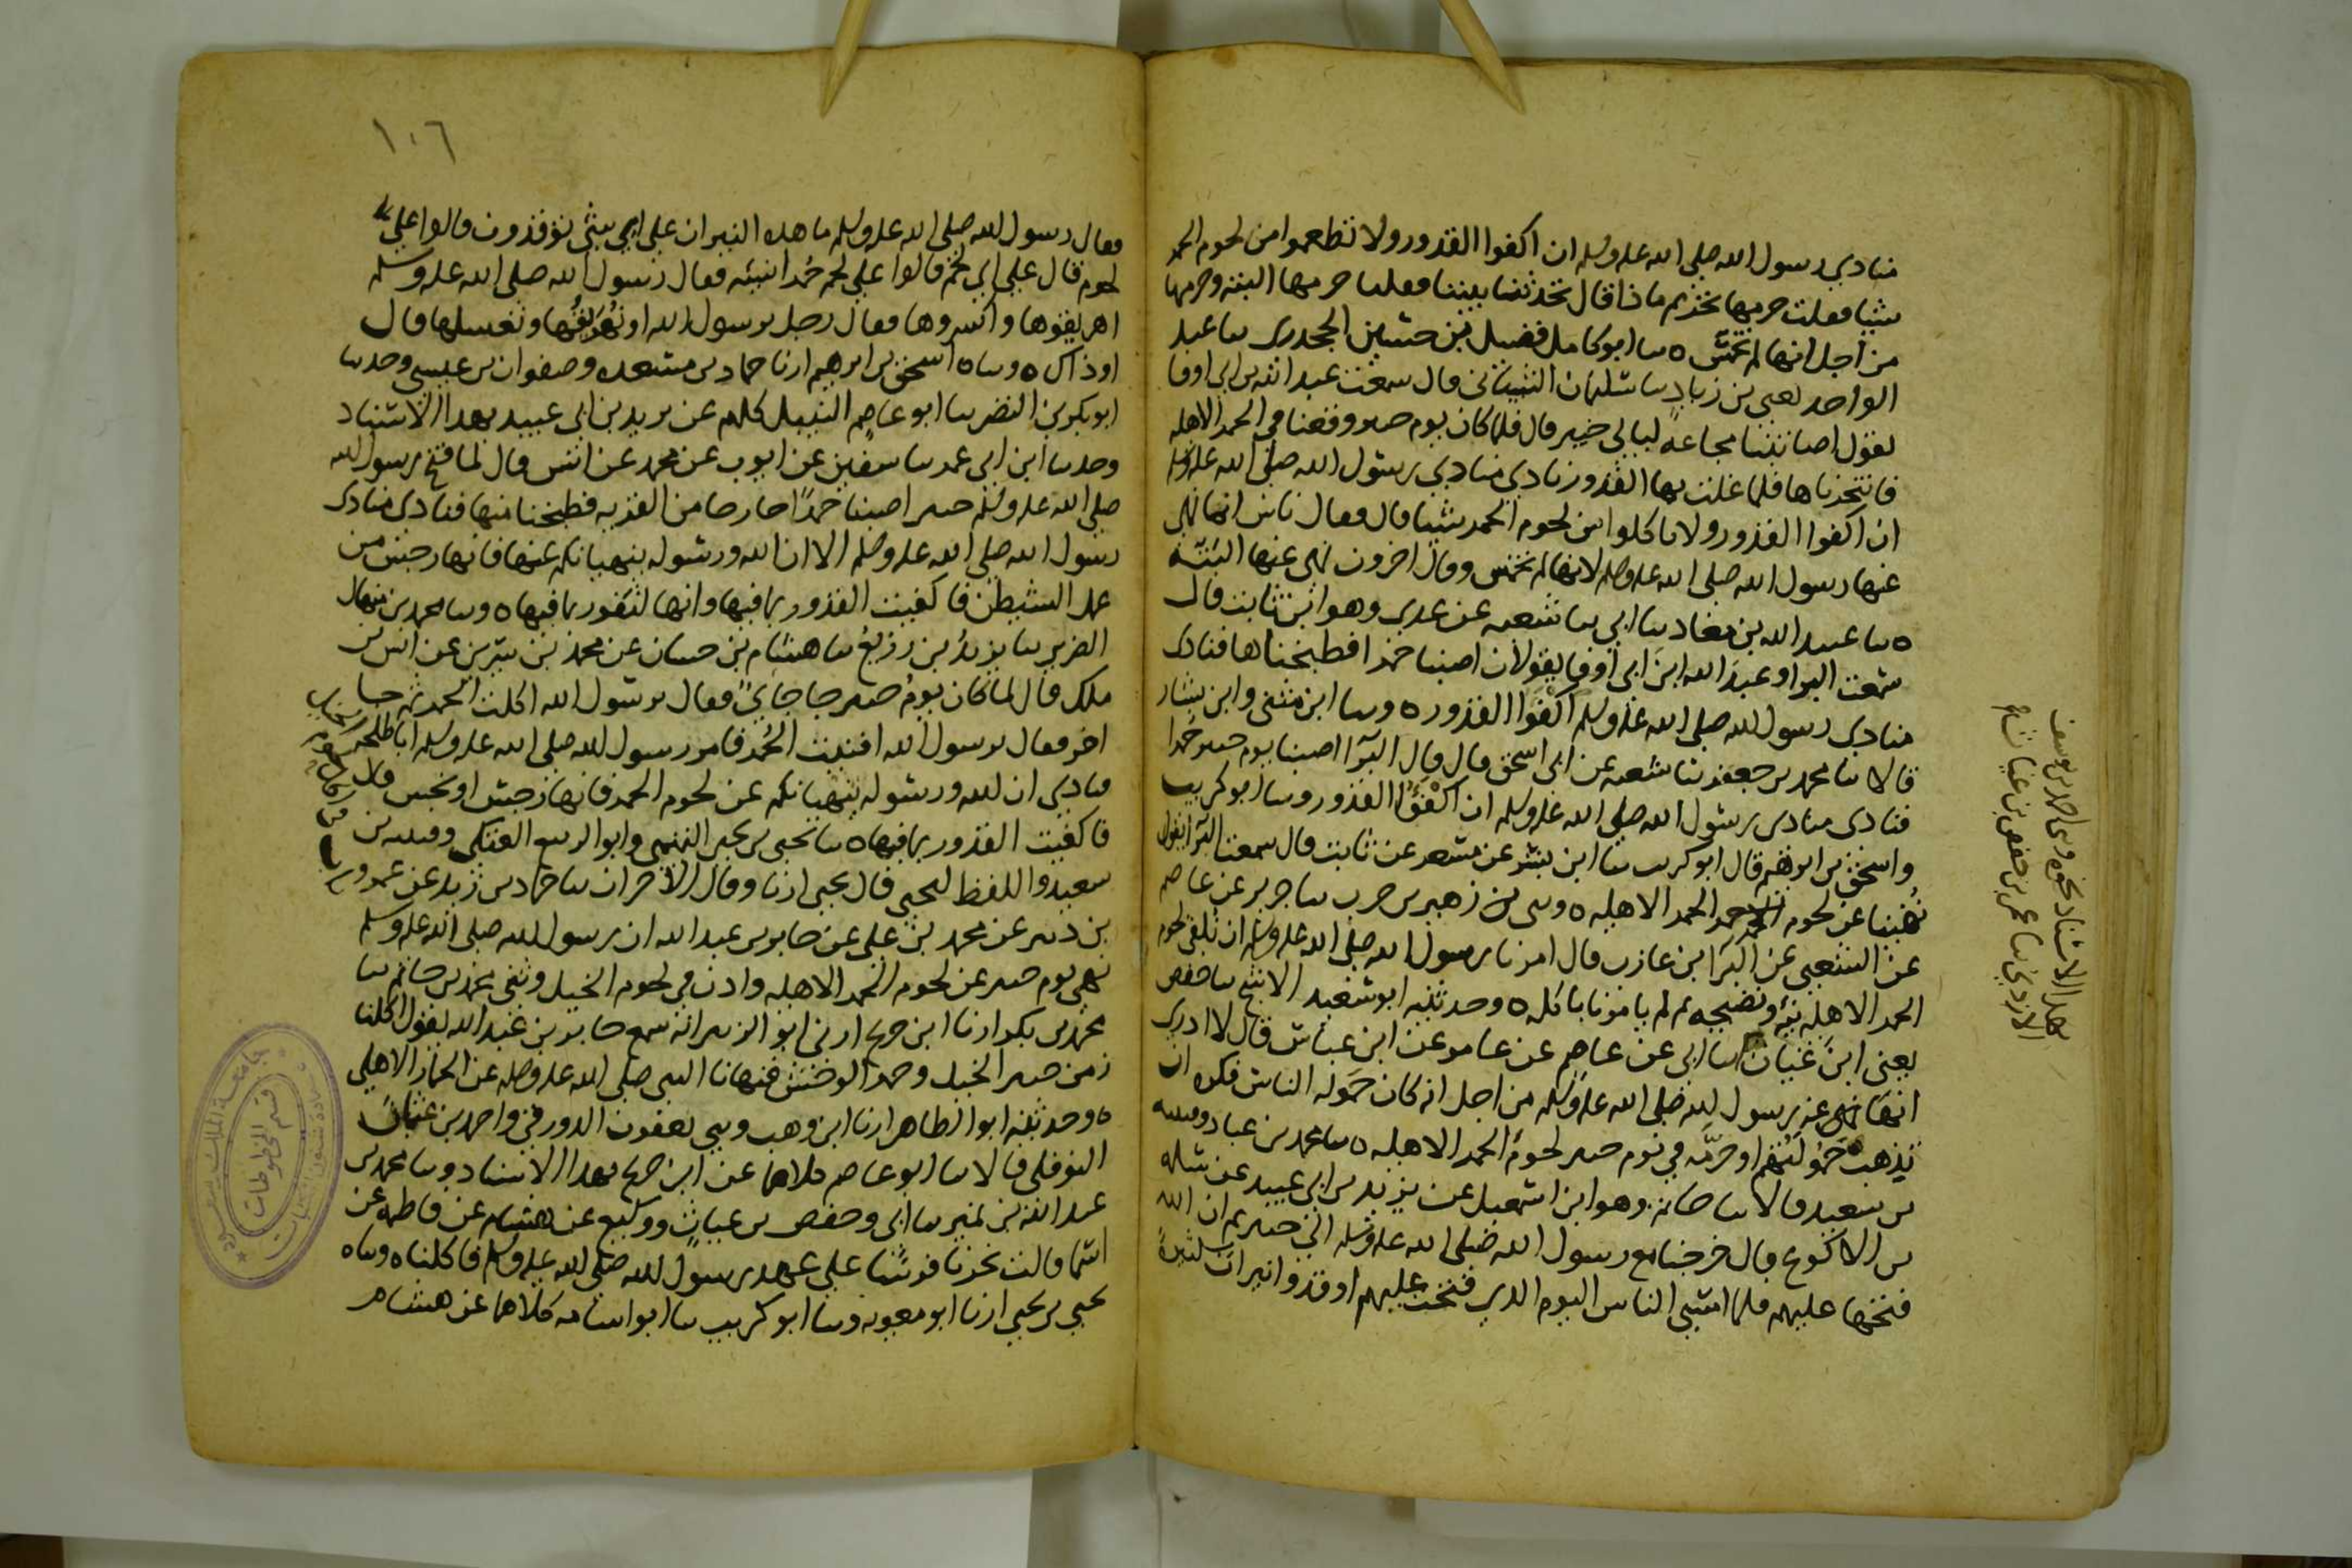 منادي رسول الله صلى الله علىه وسلم ان اكفوا القدور ولا تطعموا من لحوم الحمر
شيا فقلت حرمها تحريم ماذا قال تحدثنا بيننا فقلنا حرمها البتة وحرمها
من اجل انها لم تخمس ه نا ابو كامل فضيل بن حسين الجحدري نا عبد
الواحد يعني بن زياد نا سليمان الشيباني قال سمعت عبد الله بن ابي اوفا
يقول اصابتنا مجاعة ليالي خيبر قال فلما كان يوم خيبر وقعنا في الحمر الاهليه
فانتحرناها فلما غلت بها القدور نادي منادي رسول الله صلى الله عليه وسلم
ان اكفوا القدور ولا تاكلوا من لحوم الحمر شيا قال فقال ناس انما نهي
عنها رسول الله صلى الله عليه وسلم لانها لم تخمس وقال اخرون نهى عنها البتة
ه نا عبيد الله بن معاذ نا ابي نا شعبه عن عدي وهو ابن ثابت قال
سمعت البرا وعبد الله ابن ابي اوفى يقولان اصبنا حمرا فطبخناها فنادى
منادي رسول الله صلى الله عليه وسلم اكفوا القدور ه ونا ابن مثنى وابن بشار
قالا نا محمد بن جعفر نا شعبه عن ابي اسحق قال قال البرا اصبنا يوم خيبر حمرا
فنادى منادي رسول الله صلى الله عليه وسلم ان اكفوا القدور ونا ابو كريب
واسحق بن ابرهيم قال ابو كريب نا ابن بشر عن مسعر عن ثابت قال سمعت البرا يقول
نهينا عن لحوم الحمر الاهليه ه وني زهير بن حرب نا جرير عن عاصم
عن الشعبي عن البرا بن عازب قال امرنا رسول الله صلى الله عليه وسلم ان نلقي لحوم
الحمر الاهليه نيه ونضيجه ثم لم يامرنا باكله ه وحدثنيه ابو سعيد الاشج نا حفص
يعني ابن غياث عن عاصم بهذا الاسناد نحوه وني احمد بن يوسف
الازدي نا عمر بن حفص بن غياث
نا ابي عن عاصم عن عامر عن ابن عباس قال لا ادري
انما نهى عنه رسول الله صلى الله عليه وسلم من اجل انه كان حمولة الناس فكره ان
تذهب حمولتهم او حرمه في يوم خيبر لحوم الحمر الاهليه ه نا محمد بن عباد وقتيبه
بن سعيد قالا نا حاتم وهو ابن اسمعيل عن يزيد بن ابي عبيد عن سلمه
بن الاكوع قال خرجنا مع رسول الله صلى الله عليه وسلم الى خيبر ثم ان الله
فتحها عليهم فلما امسى الناس اليوم الذي فتحت عليهم اوقدوا نيرانا كثيرة
١٠٦
فقال رسول الله صلى الله عليه وسلم ما هذه النيران على اي شي توقدون قالوا على
لحم قال على اي لحم قالوا على لحم حمر انسيه فقال رسول الله صلى الله عليه وسلم
اهريقوها واكسروها فقال رجل يرسول الله او نهريقها ونغسلها قال
او ذاك ه ونا ه اسحق بن ابرهيم ارنا حماد بن مسعده وصفوان بن عيسى وحدنا
ابو بكر بن النضر نا ابو عاصم النبيل كلهم عن يزيد بن ابي عبيد بهذا الاسناد
وحدنا ابن ابي عمر نا سفين عن ايوب عن محمد عن انس قال لما فتح رسول الله
صلى الله عليه وسلم خيبر اصبنا حمرا خارجا من القريه فطبخنا منها فنادى منادي
رسول الله صلى الله عليه وسلم الا ان الله ورسوله ينهيانكم عنها فانها رجس من
عمل الشيطن فاكفيت القدور بما فيها وانها لتفور بما فيها ه ونا محمد بن منهال
الضرير نا يزيد بن زريع نا هشام بن حسان عن محمد بن سيرين عن انس بن
ملك قال لما كان يوم خيبر جا جاي فقال يرسول الله اكلت الحمر ثم جا
اخر فقال يرسول الله افنيت الحمر فامر رسول الله صلى الله عليه وسلم ابا طلحه
فنادي ان الله ورسوله ينهيانكم عن لحوم الحمر فانها رجس او نجس قال
فاكفيت القدور بما فيها ه نا يحيى بن يحيى التميمي وابو الربيع العتكي وقتيبه بن
سعيد واللفظ ليحيى قال يحيى ارنا وقال الاخران نا حماد بن زيد عن عمرو
بن دينر عن محمد بن علي عن جابر بن عبد الله ان رسول الله صلى الله عليه وسلم
نهى يوم خيبر عن لحوم الحمر الاهليه واذن في لحوم الخيل وثني محمد بن حاتم نا
محمد بن بكر ارنا ابن جريج ارني ابو الزبير انه سمع جابر بن عبد الله يقول اكلنا
زمن خيبر الخيل وحمر الوحش فنهانا النبي صلى الله عليه وسلم عن الحمار الاهلي
ه وحدثنيه ابو الطاهر ارنا ابن وهب وني يعقوب الدورقي واحمد بن عثمان
النوفلي قالا نا ابو عاصم كلاهما عن ابن جريج بهذا الاسناد ونا محمد بن
عبد الله بن نمير نا ابي وحفص بن غياث ووكيع عن هشام عن فاطمه عن
اسما قالت نحرنا فرسا على عهد رسول الله صلى الله عليه وسلم فاكلناه وناه
يحيى بن يحيى ارنا ابو معويه ونا ابو كريب نا ابو اسامه كلاهما عن هشام
قسم المخطوطات